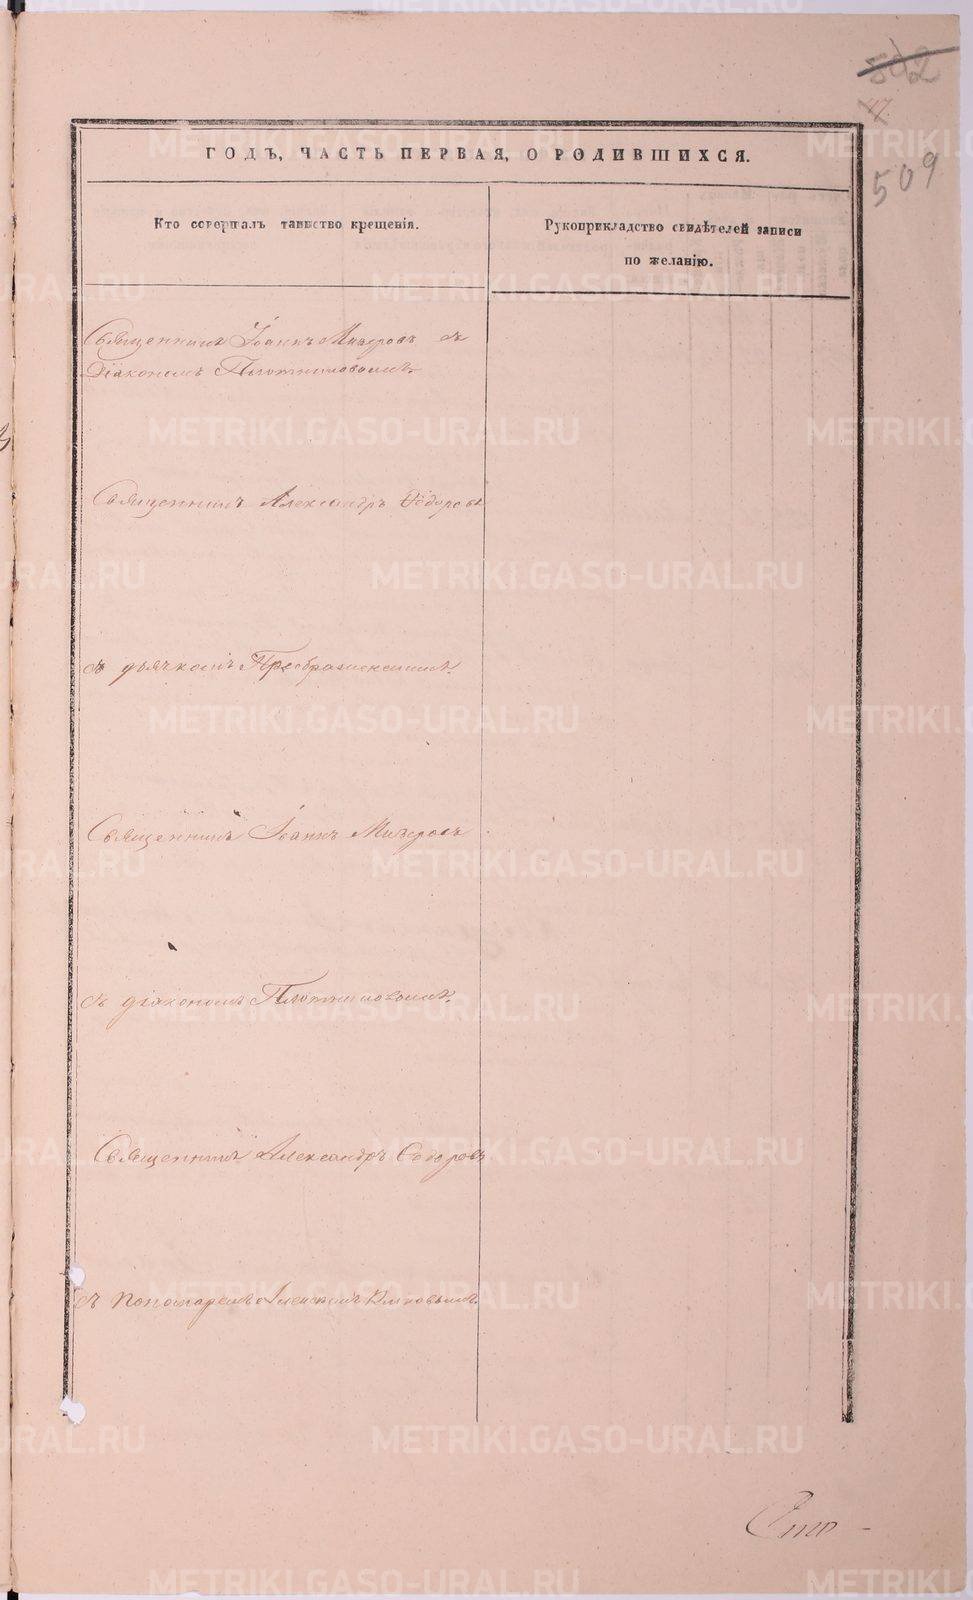 502
47.
509
ГОДЪ, ЧАСТЬ ПЕРВАЯ, О РОДИВШИХСЯ.
Кто совершалъ таинство крещенія.
Рукоприкладство свидѣтелей записи
по желанію.
Священникъ Іоаннъ Мизеровъ съ
Діакономъ Плотниковымъ.
Священникъ Александръ Ѳедоровъ
съ дьячкомъ Преображенскимъ.
Священникъ Іоаннъ Мизеровъ
съ діакономъ Плотниковымъ.
Священникъ Александръ Ѳедоровъ
съ пономаремъ Алексѣемъ
Сто-
METRIKI.GASO-URAL.RU